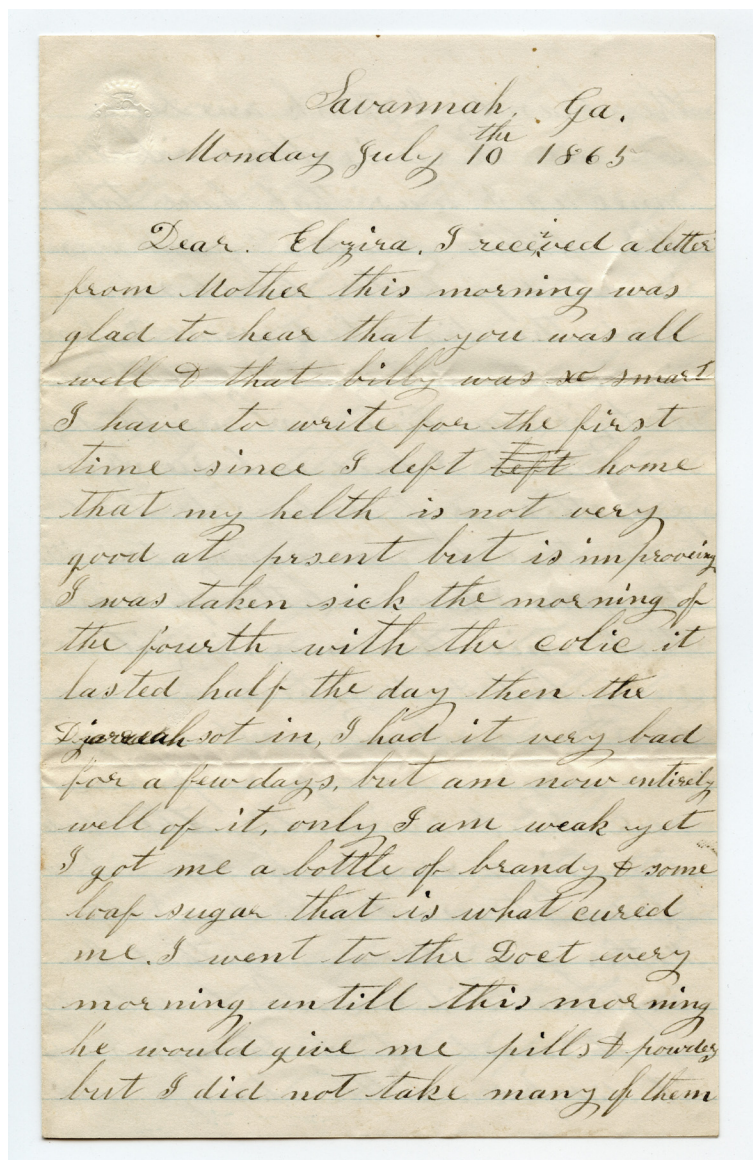 Savannah, Ga.
Monday July 10th 1865
Dear. Elzira. I received a letter
from Mother this morning was
glad to hear that you was all
well & that billy was so smart
I have to write for the first
time since I left left home
that my helth is not very
good at prsent but is improveing
I was taken sick the morning of
the fourth with the colic it
lasted half the day then the
sot in, I had it very bad
for a few days, but am now entirely
well of it, only I am weak yet
I got me a bottle of brandy & some
loaf sugar that is what cured
me. I went to the Doct every
morning untill this morning
he would give me pills & powders
but I did not take many of them